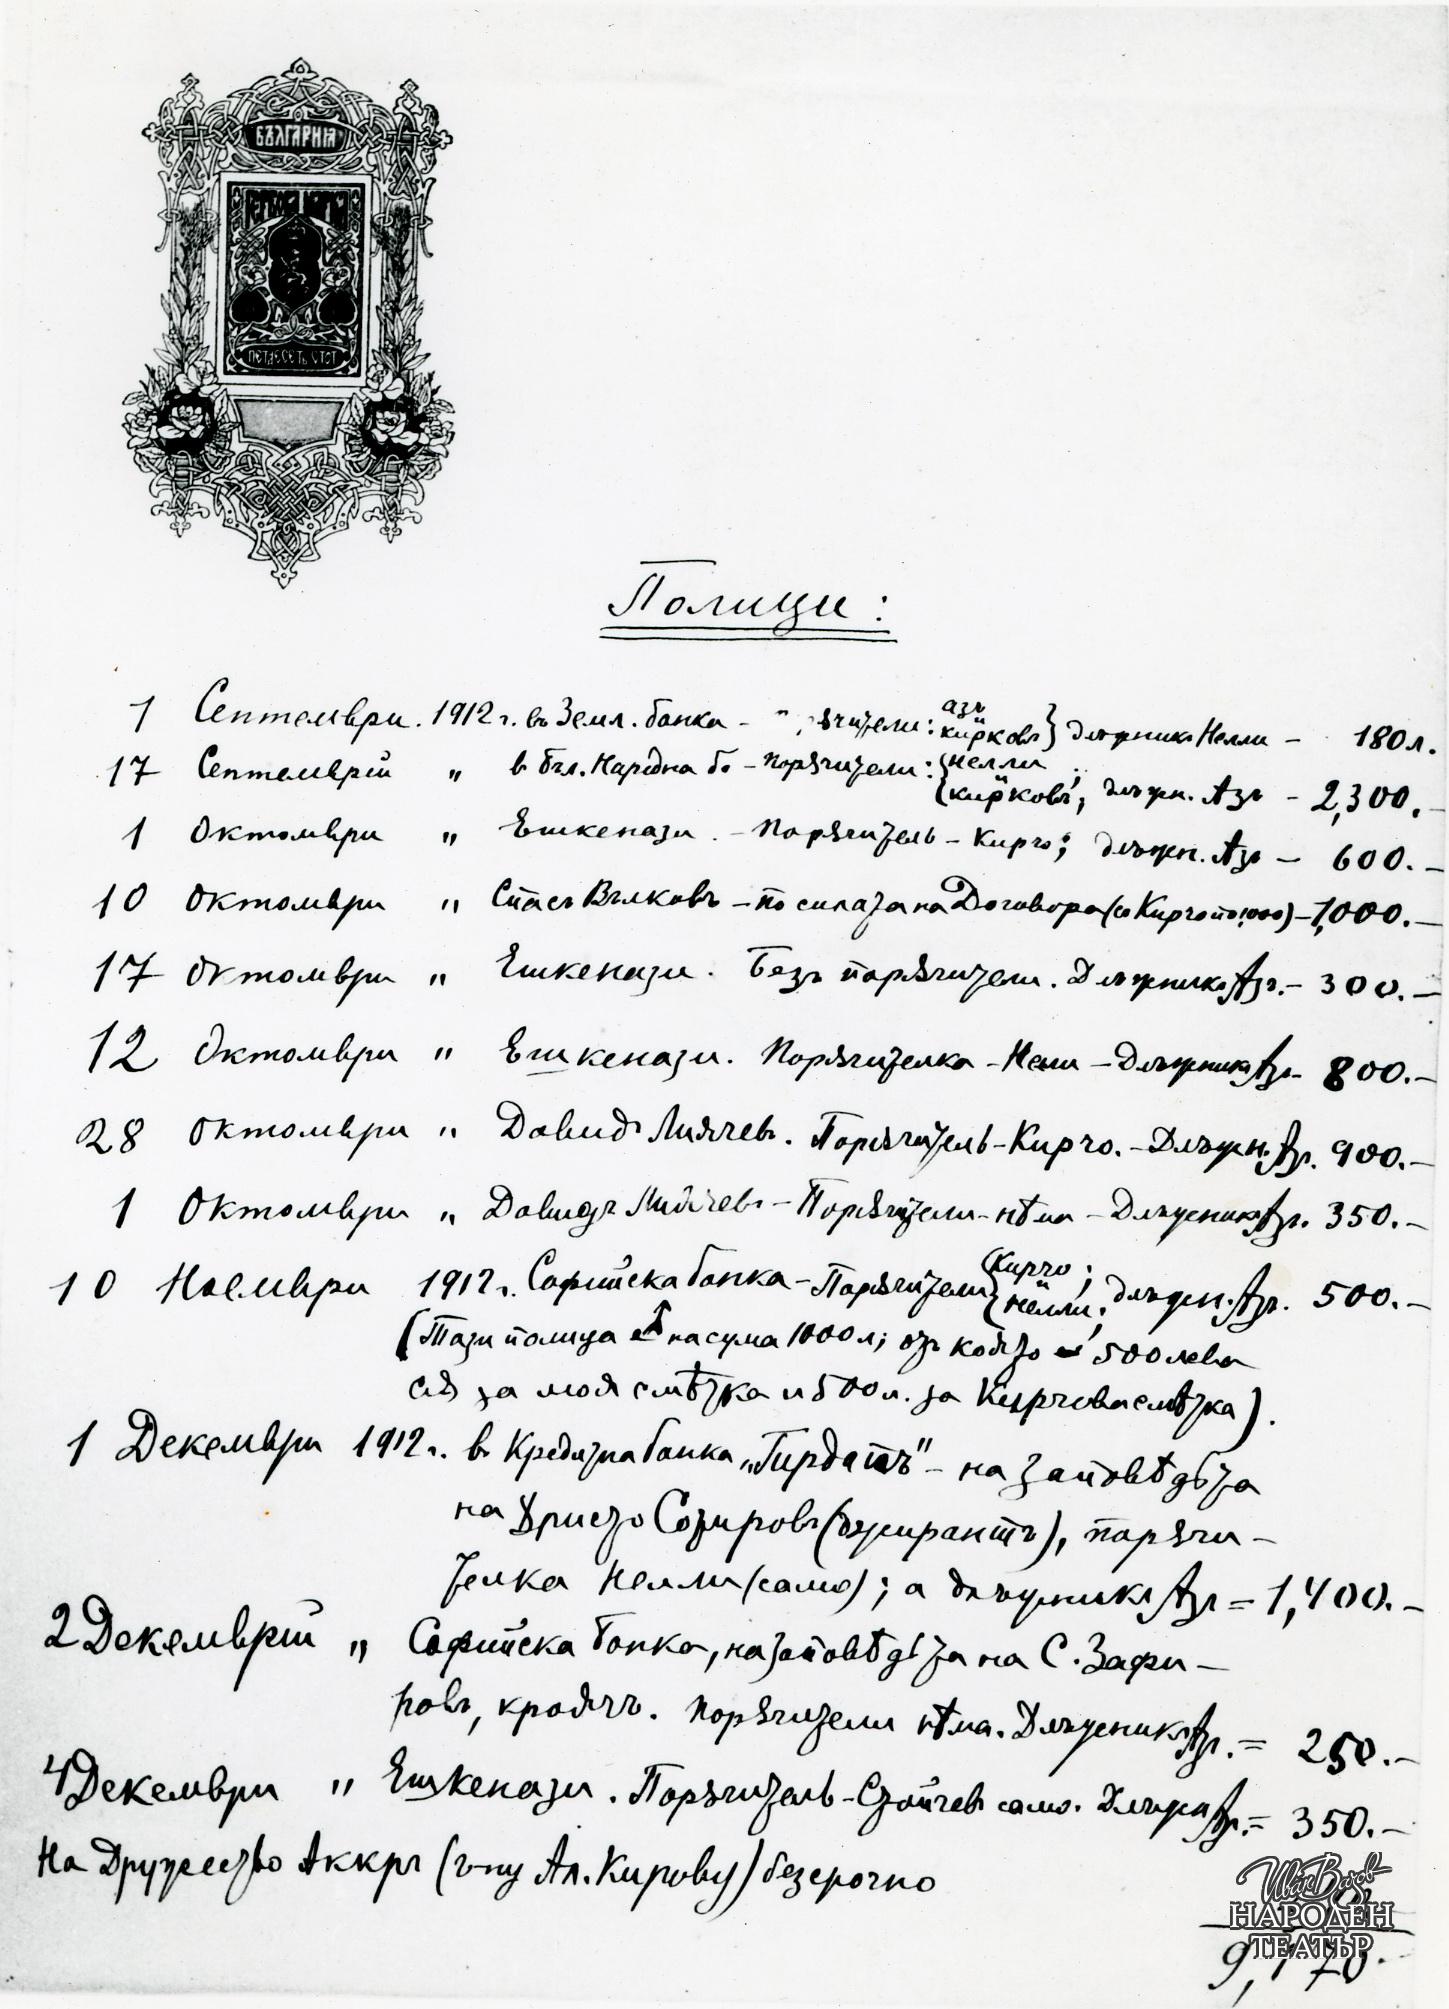 БЪЛГАРИЯ
ПЕТДЕСЕТЬ СТОТ
Полици:
1 Септември. 1912 г. въ Земл. банка - чители: азъ Кирковъ } длъжникъ Нелли - 180 л.
17 Септемврий " в бъл. Народна б. - порѫчители: { Нелли Кирковъ; длъжн. Азъ - 2,300.-
1 Октомври " Ешкенази. - порѫчитель - Кирчо; длъжн. Азъ - 600.-
10 Октомври " Спасъ Вълковъ - по силата на Договора (со Кирчо по 1000) - 1,000.-
17 Октомври " Ешкенази. Безъ порѫчители. Длъжникъ Азъ. - 300.-
12 Октомври " Ешкенази. Порѫчителка - Нели - Длъжникъ Азъ - 800.-
28 Октомври " Давидъ Лиячевъ. Порѫчитель - Кирчо. - Длъжн. Азъ. 900.-
1 Октомври " Давидъ - Порѫчители - нѣма - Длъжникъ Азъ. 350.-
10 Ноември 1912 г. Софийска банка - Порѫчители { Кирчо; Нелли; длъжн. Азъ. 500.-
(Тази полица е на сума 1000 л; отъ която 500 лева
сѫ за моя смѣтка и 500 л. за Кирчова смѣтка).
1 Декември 1912 г. в Кредитна банка „Гирдапъ" - на заповѣдьта
на Христо Сотировъ (жирантъ), порѫчи-
телка Нелли (само); а длъжникъ Азъ = 1,400.-
2 Декемврий " Софийска банка, на заповѣдьта на С. Зафи-
ровъ, кроячъ. Порѫчители нѣма. Длъжникъ Азъ. = 250.-
4 Декември " Ешкенази. Порѫчитель - Стойчевъ само. Длъжн. Азъ. = 350.-
На Дружество (г-ну Ал. Кирову) безсрочно
9,170.
Иван Вазов
НАРОДЕН
ТЕАТЪР